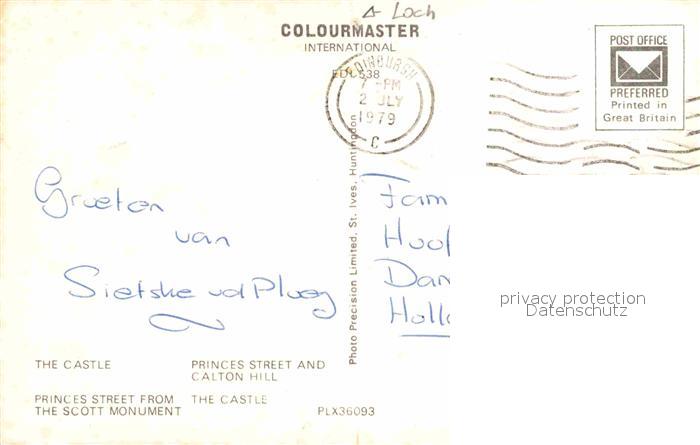 Δ Loch
COLOURMASTER
INTERNATIONAL
EDU 538
EDINBURGH
7 - PM
2 JLY
1979
C
POST OFFICE
PREFERRED
Printed in
Great Britain
Photo Precision Limited, St. Ives, Huntingdon
Groeten
van
Sietske vd Ploeg
Fam
Hoof
Dan
Holla
privacy protection
Datenschutz
THE CASTLE
PRINCES STREET AND
CALTON HILL
PRINCES STREET FROM
THE SCOTT MONUMENT
THE CASTLE
PLX36093